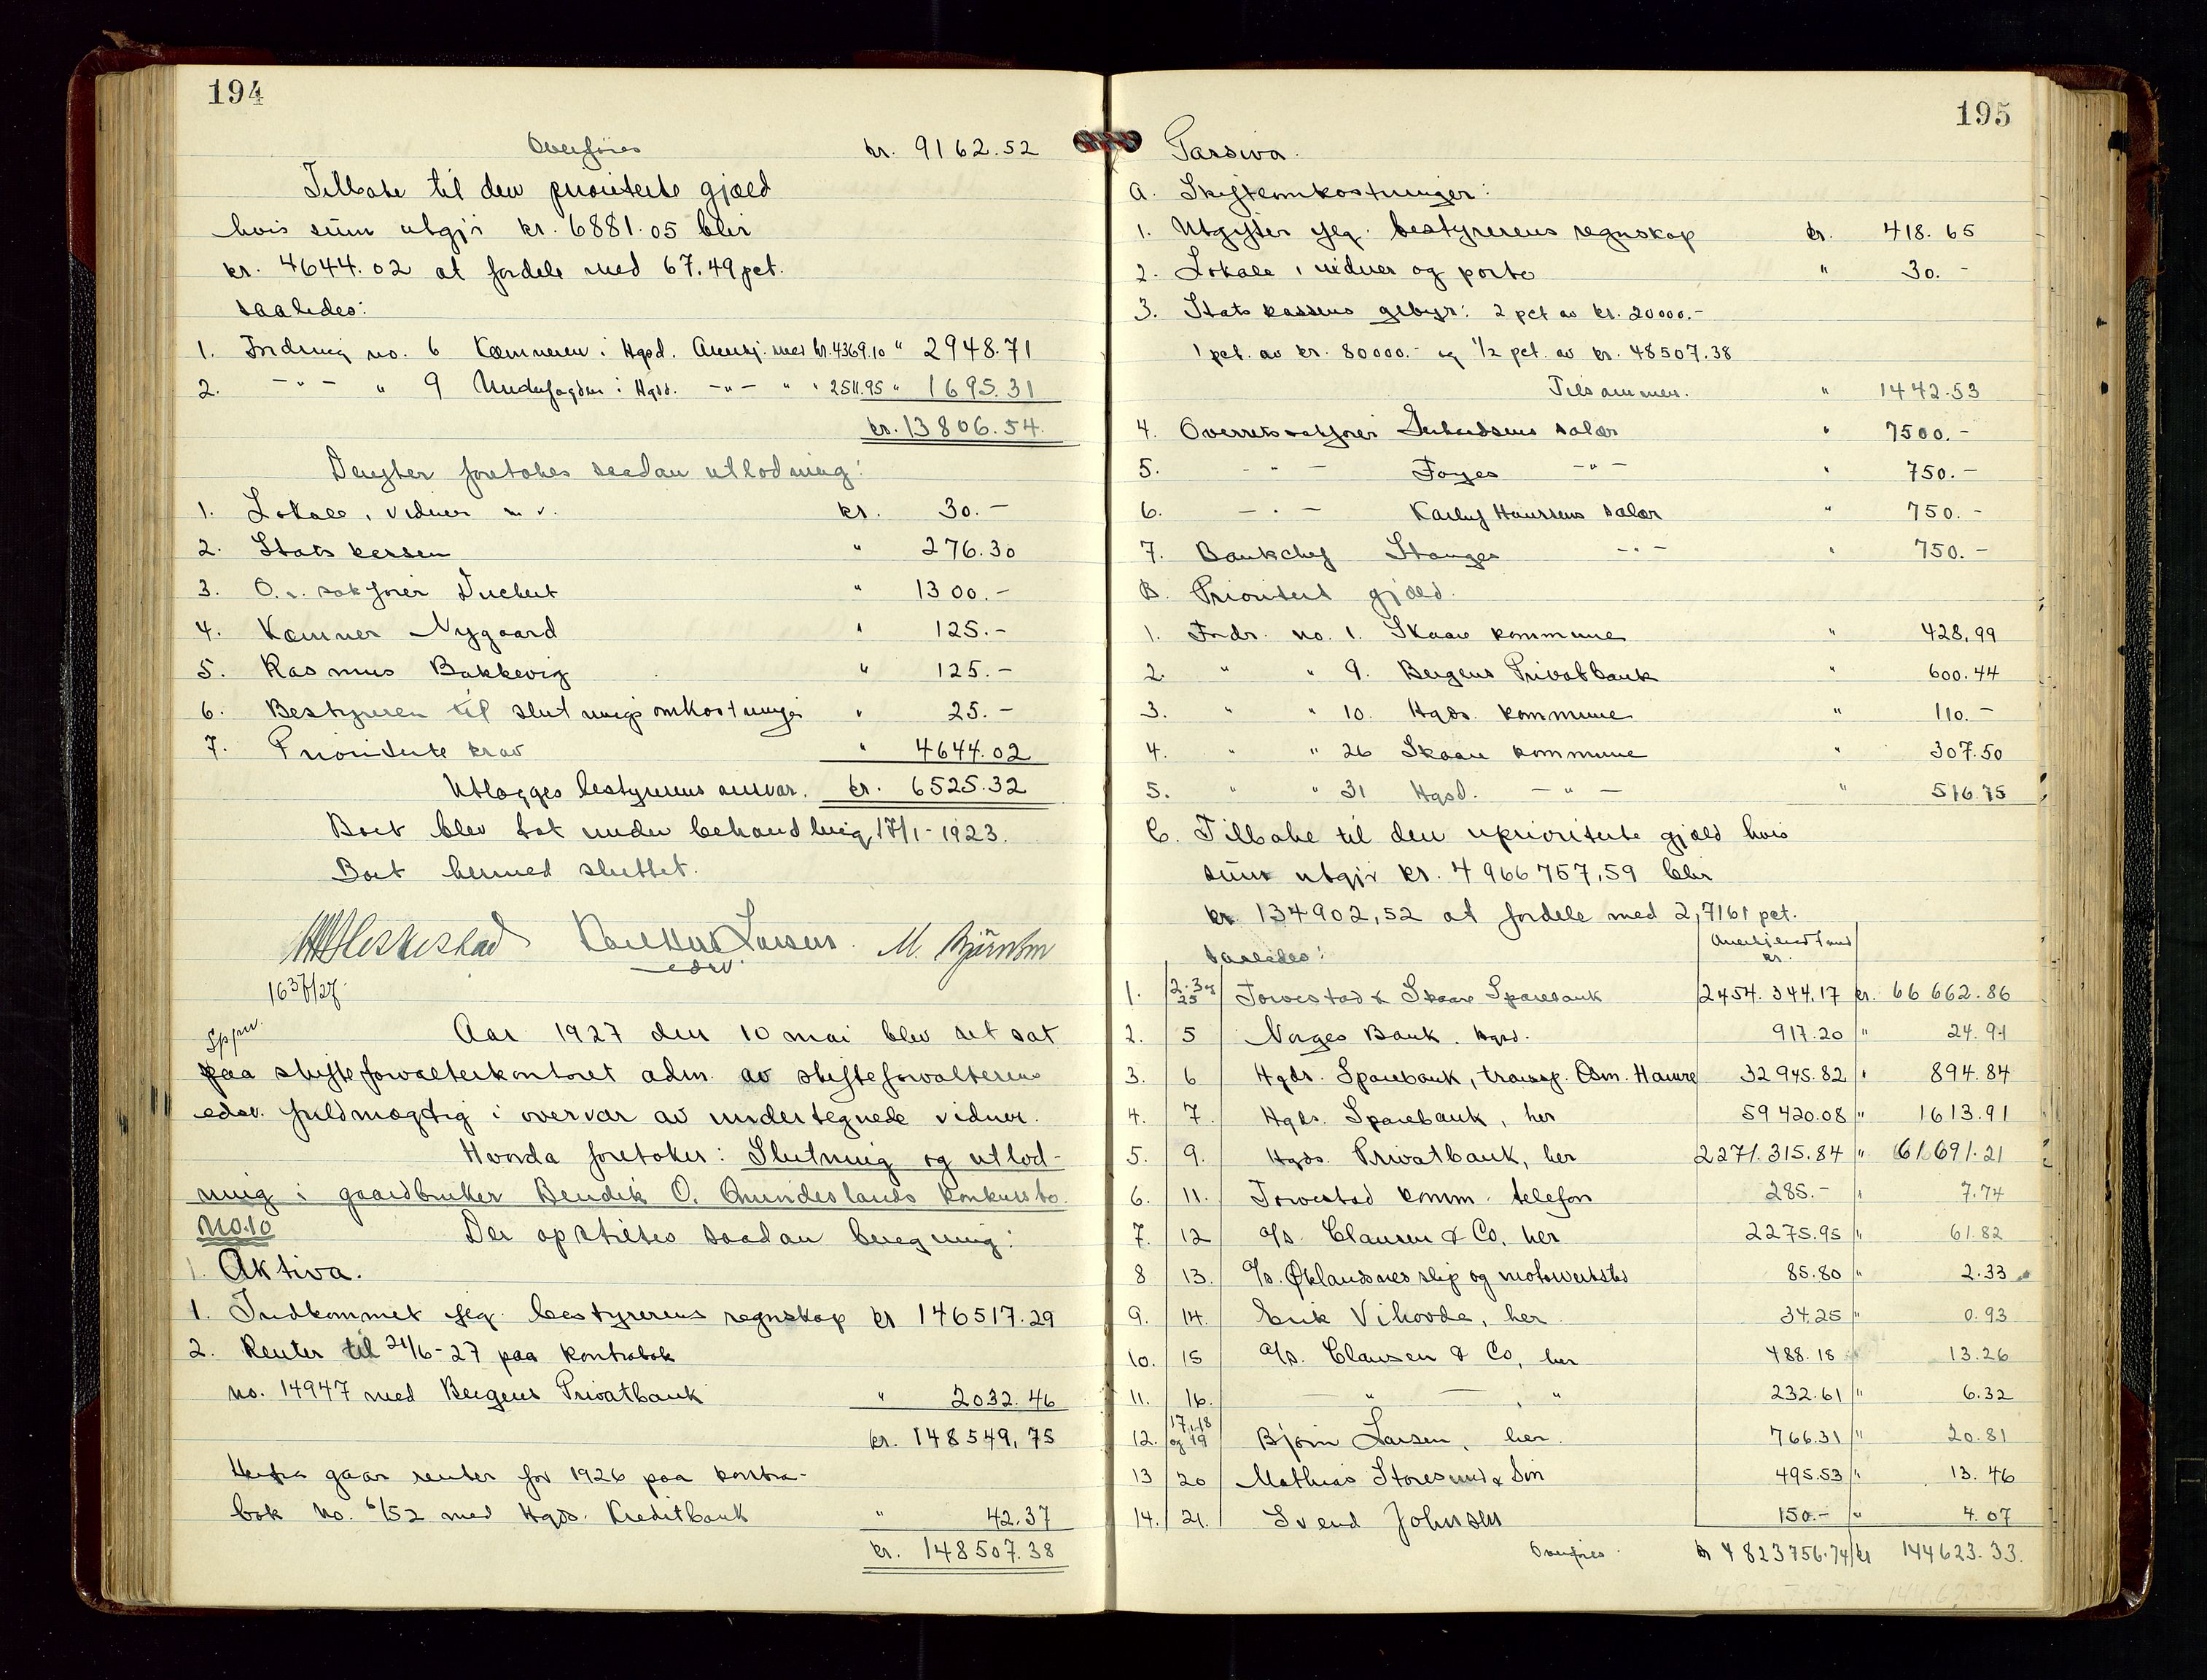 194
Overføres kr. 9162.52
Tilbake til den prioriterte gjæld
hvis sum utgjør kr. 6881.05 blir
kr. 4644.02 at fordele med 67.49 pct.
saaledes:
1. Fordring no. 6 Kæmneren i Hgsd. Anerkj. med kr. 4369.10 " 2948.71
2. -"- " 9 Underfogden i Hgsd. -"- " " 2511.95 " 1695.31
kr. 13806.54.
Derefter foretakes saadan utlodning:
1. Lokale, vidner m. v. kr. 30.-
2. Statskassen " 276.30
3. O.r. sakfører Duckert " 1300.-
4. Kæmner Nygaard " 125.-
5. Rasmus Bakkevig " 125.-
6. Bestyreren til slutningsomkostninger " 25.-
7. Prioriterte krav " 4644.02
Utlægges bestyrerens ansvar. kr. 6525.32
Boet blev tat under behandling 17/1-1923.
Boet hermed sluttet.
Larsen. M. Bjørnbom
edsv.
1637/27.
Aar 1927 den 10 mai blev ret sat
paa skifteforvalterkontoret adm. av skifteforvalterens
edsv. fuldmægtig i overvær av undertegnede vidner.
Hvorda foretokes: Slutning og utlod-
ning i gaardbruker Bendik O. Amundeslands konkursbo.
No. 10 Der opstilles saadan beregning:
1. Aktiva.
1. Indkommet ifølg. bestyrerens regnskap kr 146517.29
2. Renter til 21/6-27 paa kontrabok
no. 14947 med Bergens Privatbank " 2032.46
kr. 148549,75
Herfra gaar renter for 1926 paa kontra-
bok no. 6/52 med Hgds. Kreditbank " 42.37
kr. 148507.38
195
Passiva.
A. Skifteomkostninger:
1. Utgifter ifølg. bestyrerens regnskap kr. 418.65
2. Lokale, vidner og porto " 30.-
3. Statskassens gebyr: 2 pct av kr. 20000.-
1 pct. av kr. 80000.- og 1/2 pct. av kr. 48507.38
Tilsammen. " 1442.53
4. Overretssakfører salær " 7500.-
5. -"- Foyes -"- " 750.-
6. -"- Hanssens salær " 750.-
7. Bankchef Stanges -"- " 750.-
B. Prioritert gjæld.
1. Fordr. no. 1. Skaare kommune " 428,99
2. " " 9. Bergens Privatbank " 600.44
3. " " 10. Hgds. kommune " 110.-
4. " " 26 Skaare kommune " 307.50
5. " " 31 Hgsd. -"- " 516.75
C. Tilbake til den uprioriterte gjæld hvis
sum utgjør kr. 4966757,59 blir
kr. 134902,52 at fordele med 2,7161 pct.
saaledes: Anerkjendt med kr.
1. 2.3 og 25 Torvestad & Skaare Sparebank 2454.344.17 kr. 66662.86
2. 5 Norges Bank. Hgsd. 917.20 " 24.91
3. 6 Hgds. Sparebank, transp. Osm. Hauge 32945.82 " 894.84
4. 7. Hgds. Sparebank, her 59420.08 " 1613.91
5. 9. Hgds. Privatbank, her 2271.315.84 " 61.691.21
6. 11. Torvestad komm. telefon 285.- " 7.74
7. 12 A/S. Clausen & Co, her 2275.95 " 61.82
8 13. A/S. Øklandsnes slip og motorverksted 85.80 " 2.33
9. 14. Erik Vihovde, her. 34.25 " 0.93
10. 15 A/S. Clausen & Co, her 488.18 " 13.26
11. 16. — " — , " 232.61 " 6.32
12. 17, 18 og 19 Bjørn Larsen, her. 766.31 " 20.81
13 20 Mathias Storesund & Søn 495.53 " 13.46
14. 21. Svend Johnsen 150.- " 4.07
Overføres kr 4823756.74 kr 144623.33.